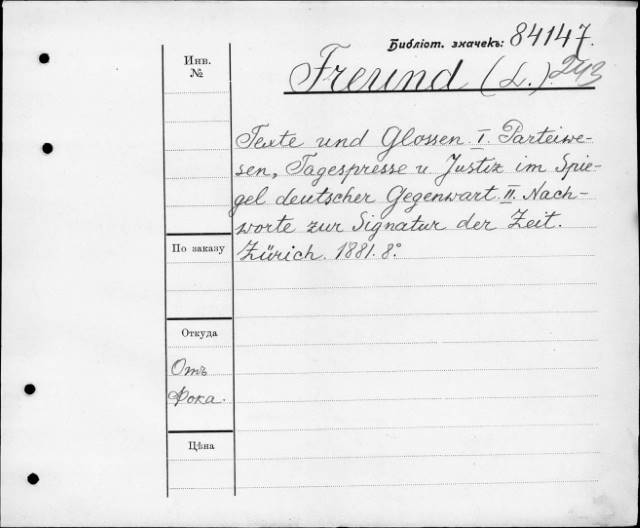 Библіот. значекъ: 84147.
243
Инв.
№
Freund (L.).
Texte und Glossen. I. Parteiwe-
sen, Tagespresse u. Justiz im Spie-
gel deutscher Gegenwart. II. Nach-
worte zur Signatur der Zeit.
По заказу
Zürich. 1881. 8°.
Откуда
Отъ
Фока.
Цѣна